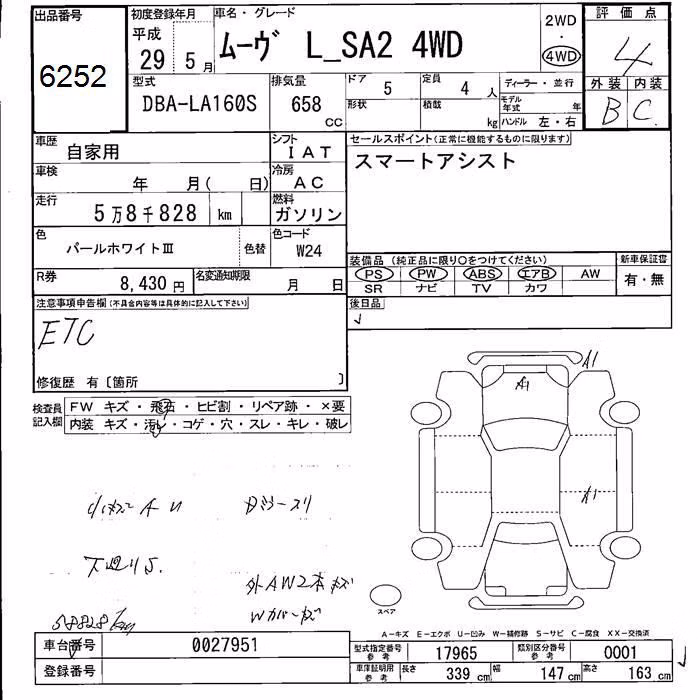 出品番号
6252
初度登録年月
平成
29 5 月
車名・グレード
ムーヴ L_SA2 4WD
2WD
・
4WD
評価点
4
外装 内装
B C
型式
DBA-LA160S
排気量
658
CC
ドア 5
定員 4 人
形状
積載 kg
ディーラー・並行
モデル年式 年
ハンドル 左・右
車歴
自家用
シフト
IAT
セールスポイント(正常に機能するものに限ります)
スマートアシスト
車検
年 月( 日)
冷房
AC
走行
5万8千828 km
燃料
ガソリン
色
パールホワイトⅢ
色替
色コード
W24
R券
8,430 円
名変通知期限
月 日
装備品(純正品に限り○をつけてください)
PS PW ABS エアB AW
SR ナビ TV カワ
新車保証書
有・無
後日品
注意事項申告欄(不具合内容等は具体的に記入して下さい)
ETC
修復歴 有〔箇所 〕
検査員記入欄
FW キズ・飛石・ヒビ割・リペア跡・×要
内装 キズ・汚レ・コゲ・穴・スレ・キレ・破レ
A1
A1
A1
小キズ A U
Dミラースリ
下廻りS
外AW2本キズ
Wカバーキズ
58828km
スペア
A-キズ E-エクボ U-凹み W-補修跡 S-サビ C-腐食 XX-交換済
車台番号
0027951
登録番号
型式指定番号
参考
17965
類別区分番号
参考
0001
車庫証明用
参考
長さ 339 cm
幅 147 cm
高さ 163 cm